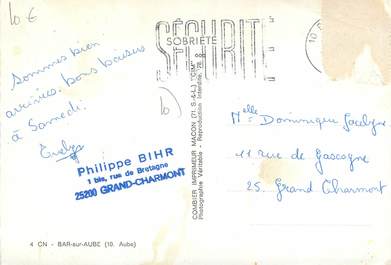 10 €
SOBRIÉTÉ
SÉCURITÉ
Sommes bien
arrivées. bons baisers
à Samedi.
Evelyne
10
Philippe BIHR
1 bis, rue de Bretagne
25200 GRAND-CHARMONT
COMBIER IMPRIMEUR MACON (71. S.-&-L.) "CIM"
Photographie Véritable - Reproduction Interdite.
Melle Dominique Jocelyne
11 rue de Gascogne
25. Grand Charmont
4 CN - BAR-sur-AUBE (10. Aube)